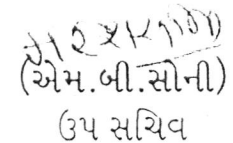 (એમ.બી.સોની)
ઉપ સચિવ